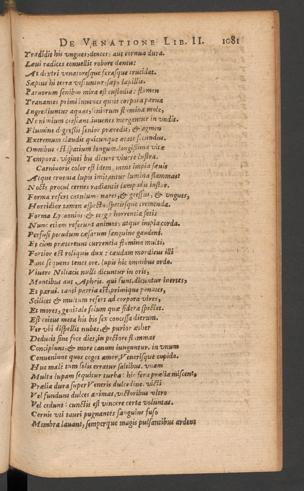 DE VENATIONE LIB. II. 1081
Tradidit his vngues, dentes: aut cornua dura.
Laui radices conuellit robore dentis:
At dextri venatoresque ferasque trucidat.
Sæpius hi terra
Paruorum senibus mira est custodia: flumen
Tranantes primi iuuenes quos corpora parua
Ingrediuntur aquas, flumina mole,
Ne nimium crescant iuuenes mergantur in vndis.
Flumine digressis senior præcedit, & agmen
Extremum claudit quicunque ætate secundus.
Omnibus est spatium longum, longissima vitæ
Tempora. viginti bis ducunt viuere lustra.
Carniuoris color est idem, mens impia sæuis
Atque truces lupis imitantur lumina flammas
Nocte procul cernes radiantis lampadis instar.
Forma refert canum: nares, & gressus, & vngues,
Horridior tamen aspectu, speciesque tremenda.
Forma & terga horrentia setis
Nunc etiam referunt animos: atque impia corda.
Perfusi pecudum cæsarum sanguine gaudent.
Et cum præterunt currentia flumina multi,
Fortior est reliquis dux: caudam mordicus illi
Pone sequens tenet ore. lupis hic omnibus ordo.
Viuere Niliacis nulli dicuntur in oris,
Montibus aut Aphris. qui sunt, dicuntur inertes,
Et parui. tanti patria est, primique penates,
Scilicet & mutum refert ad corpora vires,
Et mores, genitale solum quæ sidera spectet.
Est coitus meta his bis sex concessa dierum.
Ver vbi dispellit nubes, & purior æther
Deducit sine fæce dies, in pectore flammæ
Concipiunt: & more canum iunguntur. in vnum
Conueniunt quos coget amor, Venerisque cupido.
Hue mali tum solis erratur saltibus. vnam
Multa lupam sequitur turba: hic fera prælia miscent,
Prælia dura super Veneris dulcedine. victi
Vel fundunt dulces animas, victoribus vltro
Vel cedunt: cunctis est vincere certa voluntas.
Cernis vti tauri pugnantes sanguine fuso
Membra lauant, semperque magis pulsantibus ardens